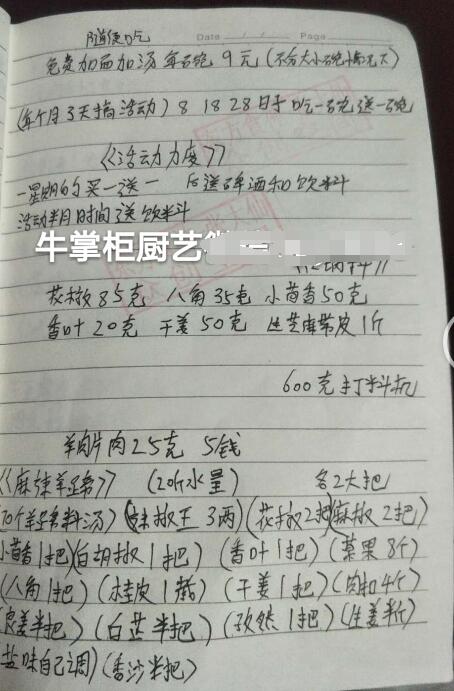 随便吃
Date Page
免费加面加汤 每碗 9元 (不分大小碗
(每个月3天搞活动) 8 18 28日子 吃一碗送一碗
《活动力度》
一星期的买一送一 后送啤酒和饮料
活动半月时间送饮料
牛掌柜厨艺
料》
花椒85克 八角35克 小茴香50克
香叶20克 干姜50克 生芝麻带皮1斤
600克打料机
羊肉片肉25克 5钱
《麻辣羊蹄》 (20斤水量) 各2大把
(70个羊蹄料汤) (辣椒王 3两) (花椒2把) (麻椒2把)
小茴香1把) (白胡椒1把) (香叶1把) (草果8个)
(八角1把) (桂皮1撮) (干姜1把) (肉扣4个)
(良姜半把) (白芷半把) (孜然1把) (生姜半斤)
盐味自己调) (香沙半把)